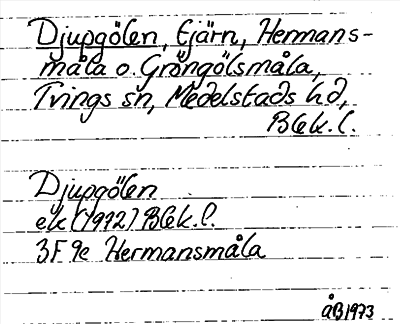 Djupgölen, tjärn, Hermans-
måla o. Gröngölsmåla,
Tvings sn, Medelstads hd,
Blek. l.
Djupgölen
ek (1972) Blek. l.
3F 9e Hermansmåla
åB 1973